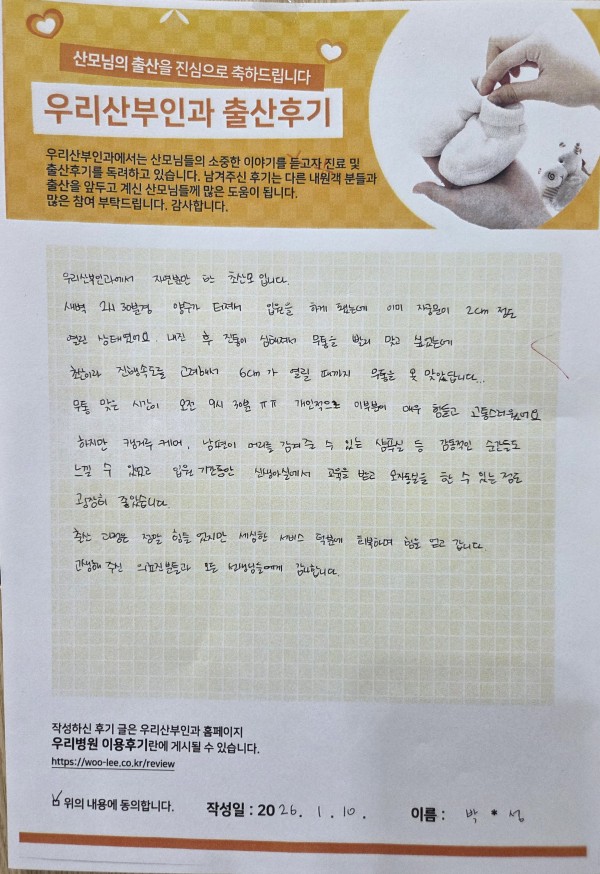 산모님의 출산을 진심으로 축하드립니다
우리산부인과 출산후기
우리산부인과에서는 산모님들의 소중한 이야기를 듣고자 진료 및
출산후기를 독려하고 있습니다. 남겨주신 후기는 다른 내원객 분들과
출산을 앞두고 계신 산모님들께 많은 도움이 됩니다.
많은 참여 부탁드립니다. 감사합니다.
우리산부인과에서 자연분만 한 초산모입니다.
새벽 2시 30분경 양수가 터져서 입원을 하게 됐는데 이미 자궁문이 2cm 정도
열린 상태였어요. 내진 후 진통이 심해져서 무통을 빨리 맞고 싶었는데
초산이라 진행속도를 고려해서 6cm가 열릴 때까지 무통을 못 맞았답니다...
무통 맞은 시간이 오전 9시 30분 ㅠㅠ 개인적으로 이부분이 매우 힘들고 고통스러웠어요
하지만 캥거루 케어, 남편이 머리를 감겨줄 수 있는 샴푸실 등 감동적인 순간들도
느낄 수 있었고 입원 기간동안 신생아실에서 교육을 받고 모자동실을 할 수 있는 점도
굉장히 좋았습니다.
출산 과정은 정말 힘들었지만 세심한 서비스 덕분에 회복하며 힘을 얻고 갑니다
고생해 주신 의료진분들과 모든 선생님들에게 감사합니다.
작성하신 후기 글은 우리산부인과 홈페이지
우리병원 이용후기란에 게시될 수 있습니다.
https://woo-lee.co.kr/review
위의 내용에 동의합니다. 작성일 : 2026. 1. 10. 이름 : 박 * 성